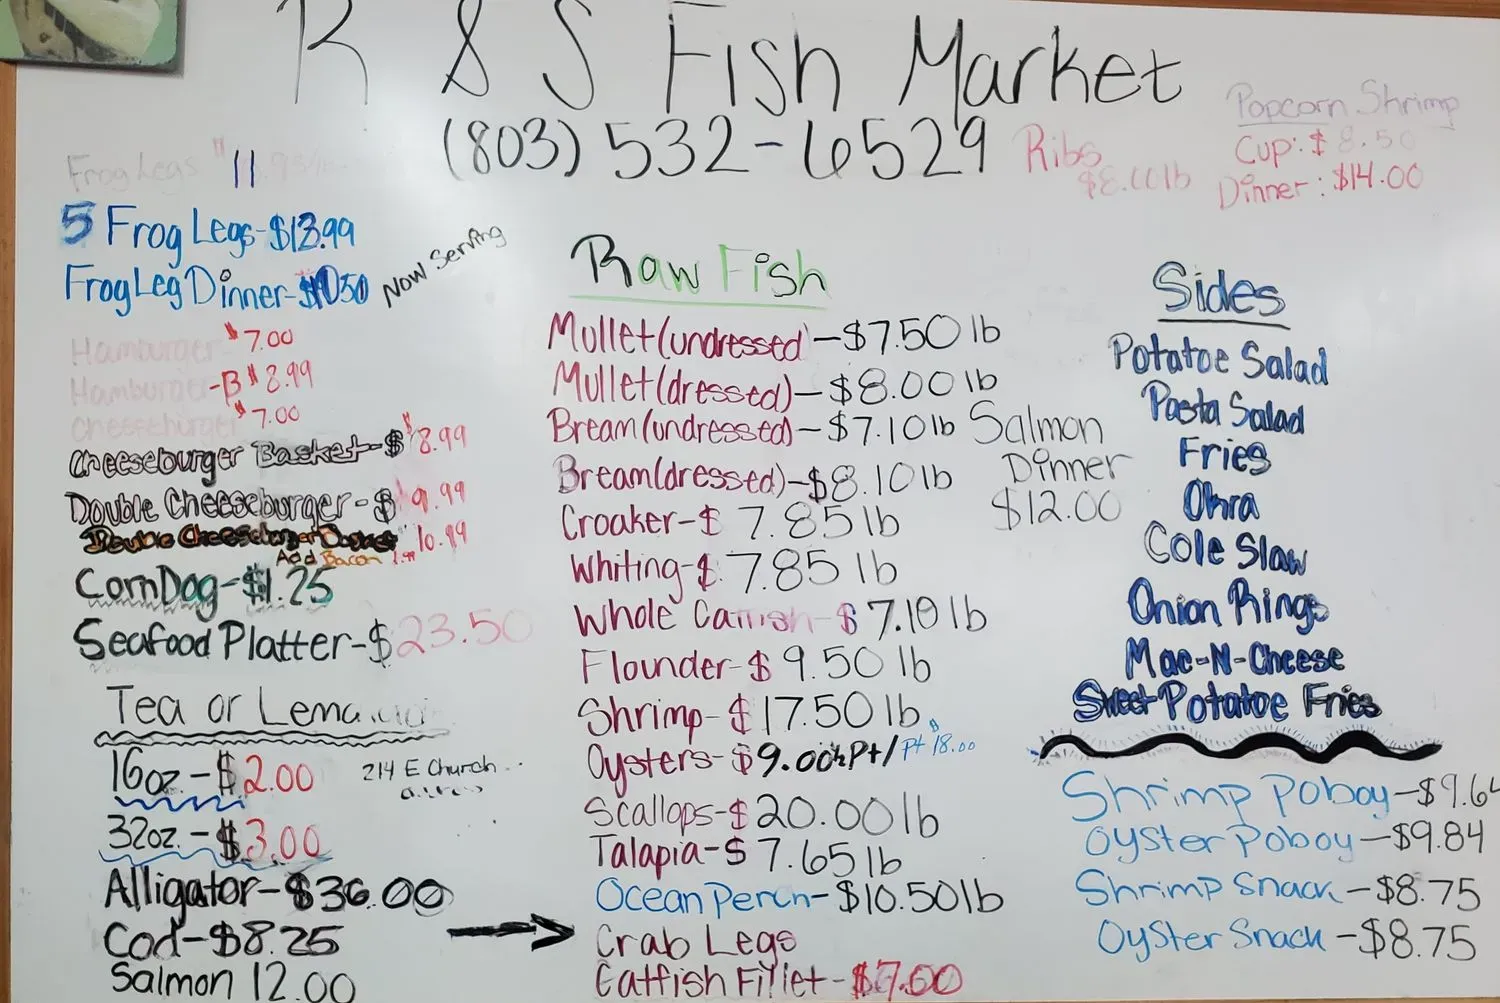 R & S Fish Market
(803) 532-6529
Ribs
$8.00lb
Popcorn Shrimp
Cup: $8.50
Dinner: $14.00
Frog Legs $11
5 Frog Legs-$13.99
Frog Leg Dinner-$10.50
Now Serving
Hamburger $7.00
Hamburger-B $8.99
Cheeseburger $7.00
Cheeseburger Basket-$8.99
Double Cheeseburger-$9.99
Double Cheeseburger Basket 10.99
Add Bacon
Corn Dog-$1.25
Seafood Platter-$23.50
Tea or
16oz-$2.00
32oz.-$3.00
214 E Church
Alligator-$36.00
Cod-$8.25
Salmon 12.00
Raw Fish
Mullet(undressed)-$7.50 lb
Mullet(dressed)-$8.00 lb
Bream(undressed)-$7.10 lb
Bream(dressed)-$8.10 lb
Croaker-$ 7.85 lb
Whiting-$ 7.85 lb
Whole Catfish-$ 7.10 lb
Flounder-$ 9.50 lb
Shrimp-$17.50 lb
Oysters-$9.00 Pt/ Pt $18.00
Scallops-$20.00 lb
Talapia-$ 7.65 lb
Ocean Perch-$10.50 lb
Crab Legs
Catfish Fillet-$7.00
Salmon
Dinner
$12.00
Sides
Potatoe Salad
Pasta Salad
Fries
Okra
Cole Slaw
Onion Rings
Mac-N-Cheese
Sweet Potatoe Fries
Shrimp Poboy-$9.64
Oyster Poboy-$9.84
Shrimp Snack-$8.75
Oyster Snack-$8.75